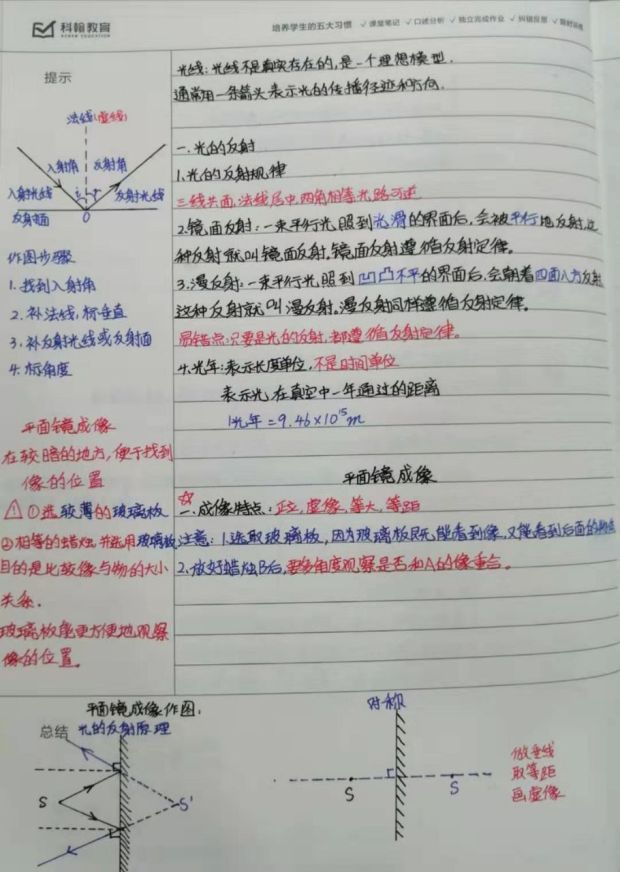 科翰教育
培养学生的五大习惯 √ 课堂笔记 √ 口述分析 √ 独立完成作业 √ 纠错反思
提示
法线(虚线)
入射角 反射角
入射光线 i r 反射光线
反射面 O
作图步骤
1.找到入射角
2.补法线,标垂直
3.补反射光线或反射面
4.标角度
平面镜成像
在较暗的地方,便于找到
像的位置
①选较薄的玻璃板
②相等的蜡烛,并选用玻璃板
目的是比较像与物的大小
关系.
玻璃板能更方便地观察
像的位置。
光线:光线不是真实存在的,是一个理想模型.
通常用一条箭头表示光的传播径迹和方向.
一.光的反射
1.光的反射规律
三线共面,法线居中,两角相等光路可逆
2.镜面反射:一束平行光照到光滑的界面后,会被平行地反射,这
种反射就叫镜面反射,镜面反射遵循反射定律。
3.漫反射:一束平行光照到凹凸不平的界面后,会朝着四面八方反射
这种反射就叫漫反射.漫反射同样遵循反射定律。
易错点:只要是光的反射,都遵循反射定律。
4.光年:表示长度单位,不是时间单位
表示光在真空中一年通过的距离
1光年=9.46×10¹⁵m
平面镜成像
☆
一.成像特点:正立,虚像,等大,等距
注意:1.选取玻璃板,因为玻璃板既能看到像,又能看到后面的物体
2.放好蜡烛B后,要多角度观察是否和A的像重合。
平面镜成像作图:
总结 光的反射原理
S S'
对称
S S'
做垂线
取等距
画虚像